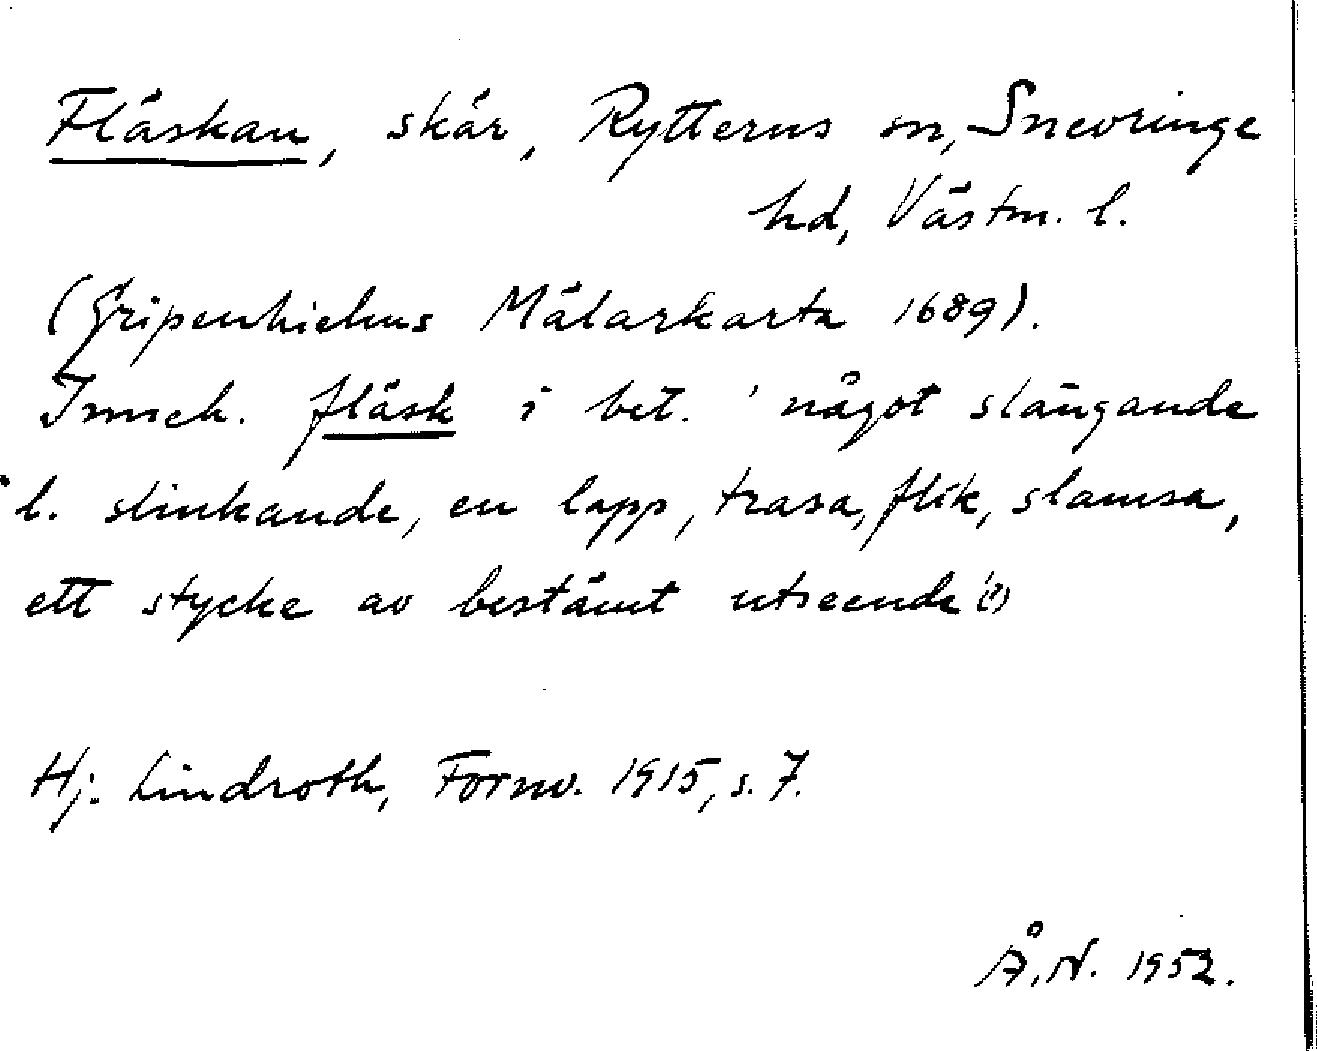 Fläskan, skär, Rytterns sn, Snevringe
hd, Västm. l.
(Gripenhielms Mälarkarta 1689).
Inneh. fläsk i bet. 'något slängande
l. slinkande, en lapp, trasa, flik, slamsa,
ett stycke av bestämt utseende'(?)
Hj. Lindroth, Fornv. 1915, s. 7.
Å. N. 1952.